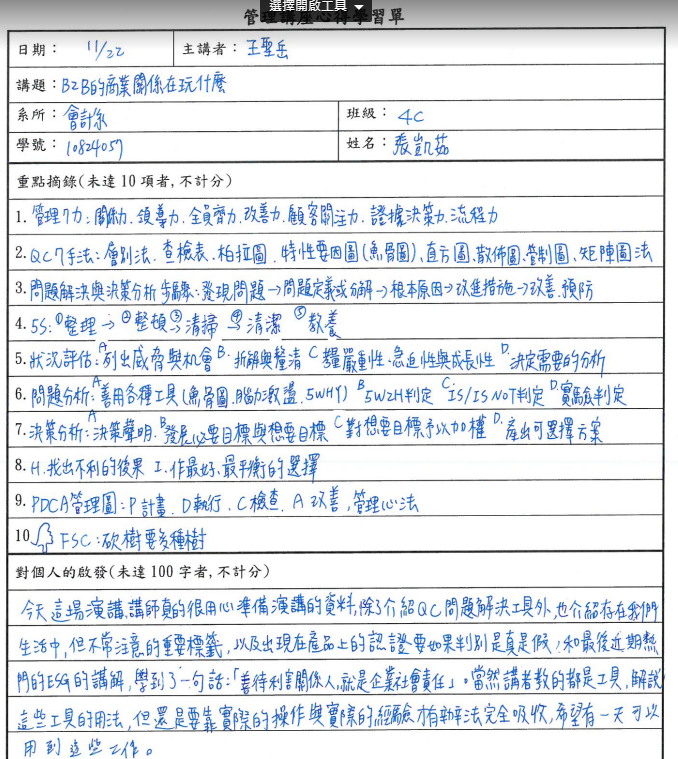 選擇開啟工具
管理講座心得學習單
日期： 11/22 主講者： 王聖岳
講題：B2B的商業關係在玩什麼
系所： 會計系 班級： 4C
學號： 10824057 姓名： 張凱茹
重點摘錄(未達 10 項者,不計分)
1. 管理7力：關係力、領導力、全員齊力、改善力、顧客關注力、證據決策力、流程力
2. QC7手法：層別法、查檢表、柏拉圖、特性要因圖(魚骨圖)、直方圖、散佈圖、管制圖、矩陣圖法
3. 問題解決與決策分析步驟：發現問題→問題定義或分解→根本原因→改進措施→改善、預防
4. 5S：①整理→②整頓③→清掃④→清潔⑤教養
5. 狀況評估：A.列出威脅與機會 B.拆解與釐清 C.釐嚴重性、急迫性與成長性 D.決定需要的分析
6. 問題分析：A.善用各種工具(魚骨圖、腦力激盪、5WHY) B.5W2H判定 C.IS/IS NOT判定 D.實驗判定
7. 決策分析：A.決策聲明、B.發展必要目標與想要目標 C.對想要目標予以加權 D.產出可選擇方案
8. H.找出不利的後果 I.作最好、最平衡的選擇
9. PDCA管理圖：P計畫、D執行、C檢查、A改善，管理心法
10. FSC：砍樹要多種樹
對個人的啟發(未達 100 字者,不計分)
今天這場演講，講師真的很用心準備演講的資料，除了介紹QC問題解決工具外，也介紹存在我們
生活中，但不常注意的重要標籤，以及出現在產品上的認證要如果判別是真是假，和最後近期熱
門的ESG的講解，學到了一句話：「善待利害關係人，就是企業社會責任」。當然講者教的都是工具，解說
這些工具的用法，但還是要靠實際的操作與實際的經驗才有辦法完全吸收，希望有一天可以
用到這些工作。